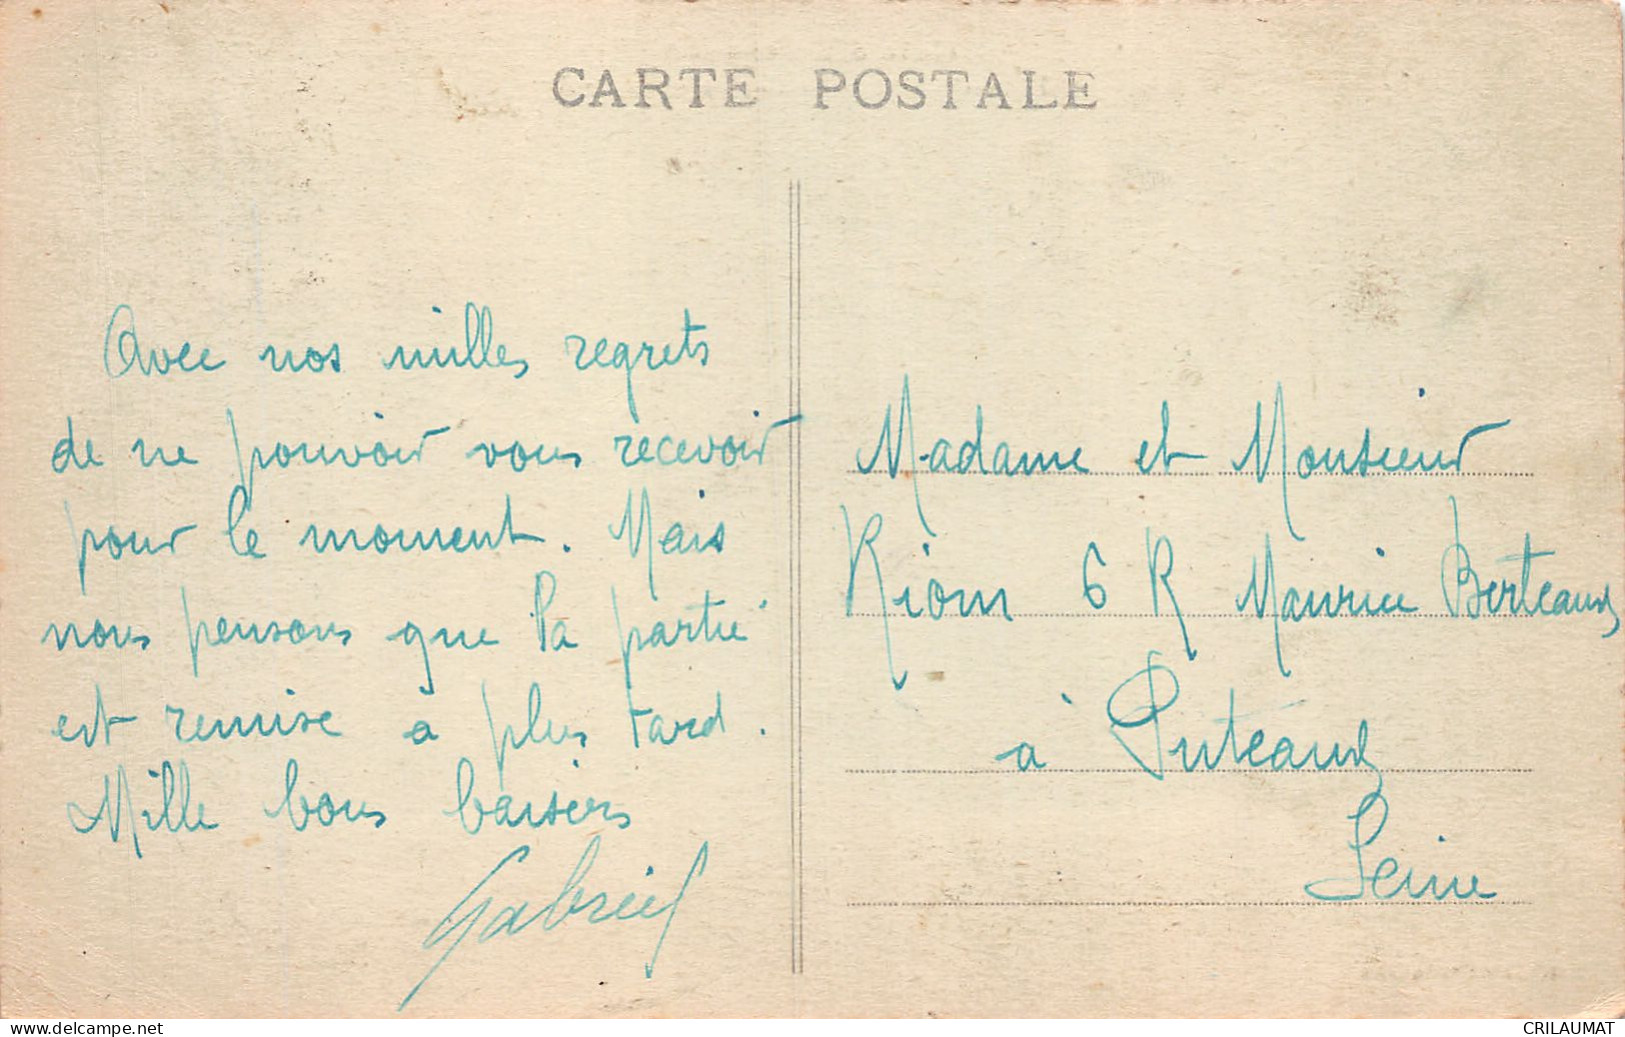 CARTE POSTALE
Avec nos milles regrets
de ne pouvoir vous recevoir
pour le moment. Mais
nous pensons que la partie
est remise à plus tard.
Mille bons baisers
Gabriel
Madame et Monsieur
Riom 6 R Maurice Berteaux
à Puteaux
Seine
www.delcampe.net
CRILAUMAT